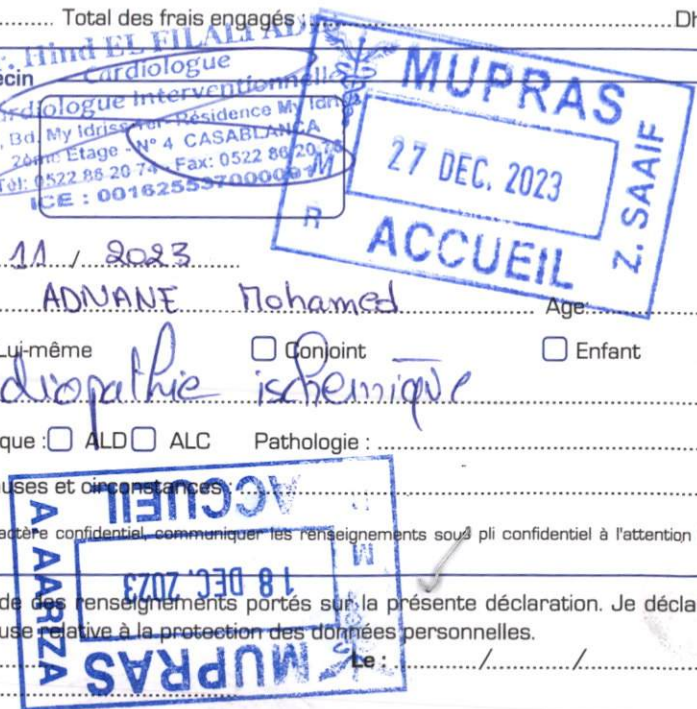 Total des frais engagés : Dh
Dr. Hind EL FILALI AD
écin
Cardiologue
Cardiologue Interventionnelle
, Bd. My Idriss 1er Résidence My Idri
2ème Etage - N° 4 CASABLANCA
Tél: 0522 86 20 74 Fax: 0522 86 20
ICE :
MUPRAS
27 DEC. 2023
ACCUEIL
Z. SAAIF
M
R
11 / 2023
ADNANE Mohamed Age:
Lui-même Conjoint Enfant
diopathie ischemique
que : ALD ALC Pathologie :
uses et circonstances :
actère confidentiel, communiquer les renseignements sous pli confidentiel à l'attention
ACCUEIL
18 DEC. 2023
MUPRAS
A. AARZA
M
de des renseignements portés sur la présente déclaration. Je décla
use relative à la protection des données personnelles.
Le : / /